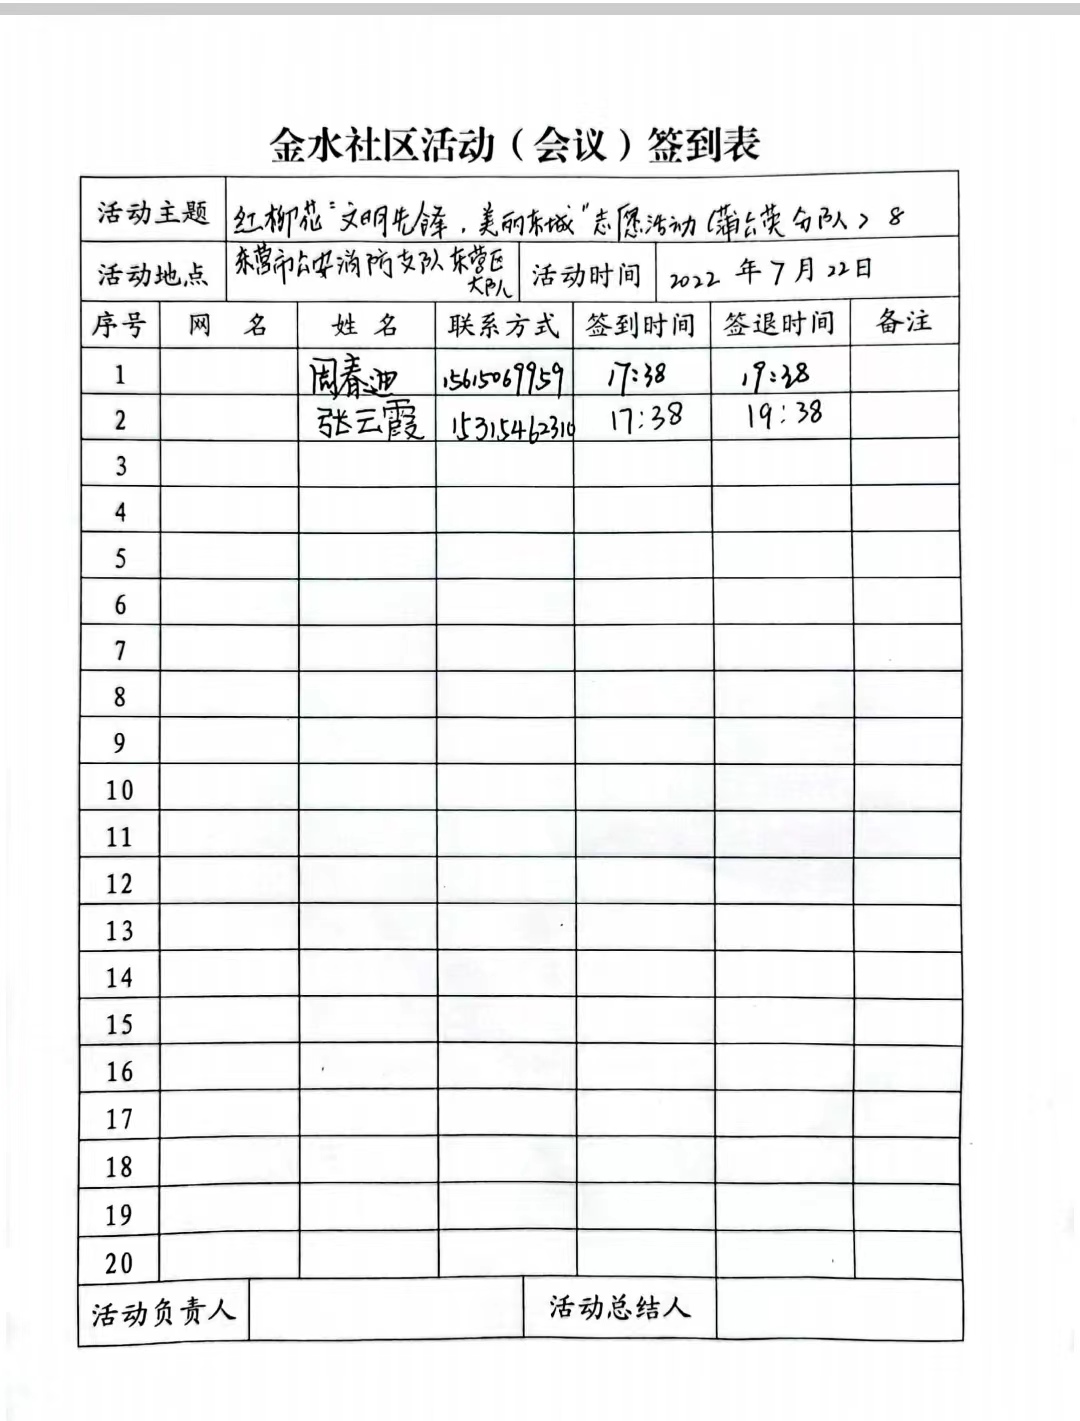 金水社区活动（会议）签到表
活动主题 红柳花“文明先锋，美丽东城”志愿活动（蒲公英分队）8
活动地点 东营市公安消防支队东营区大队 活动时间 2022年7月22日
序号 网 名 姓 名 联系方式 签到时间 签退时间 备注
1 周春迪 15615069959 17:38 19:38
2 张云霞 15315462310 17:38 19:38
3
4
5
6
7
8
9
10
11
12
13
14
15
16
17
18
19
20
活动负责人 活动总结人